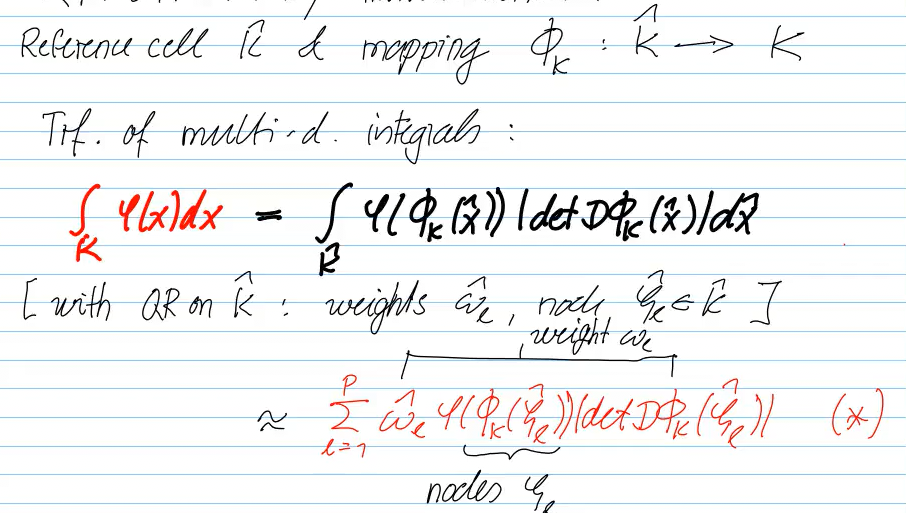 Reference cell K̂ & mapping Φ_K : K̂ → K
Trf. of multi-d. integrals :
∫_K φ(x)dx = ∫_K̂ φ(Φ_K(x̂)) |det DΦ_K(x̂)| dx̂
[ with QR on K̂ : weights ω̂_ℓ , node ζ̂_ℓ ∈ K̂ ]
weight ω_ℓ
≈ ∑_{ℓ=1}^{P} ω̂_ℓ φ(Φ_K(ζ̂_ℓ)) |det DΦ_K(ζ̂_ℓ)| (x)
nodes ζ_ℓ